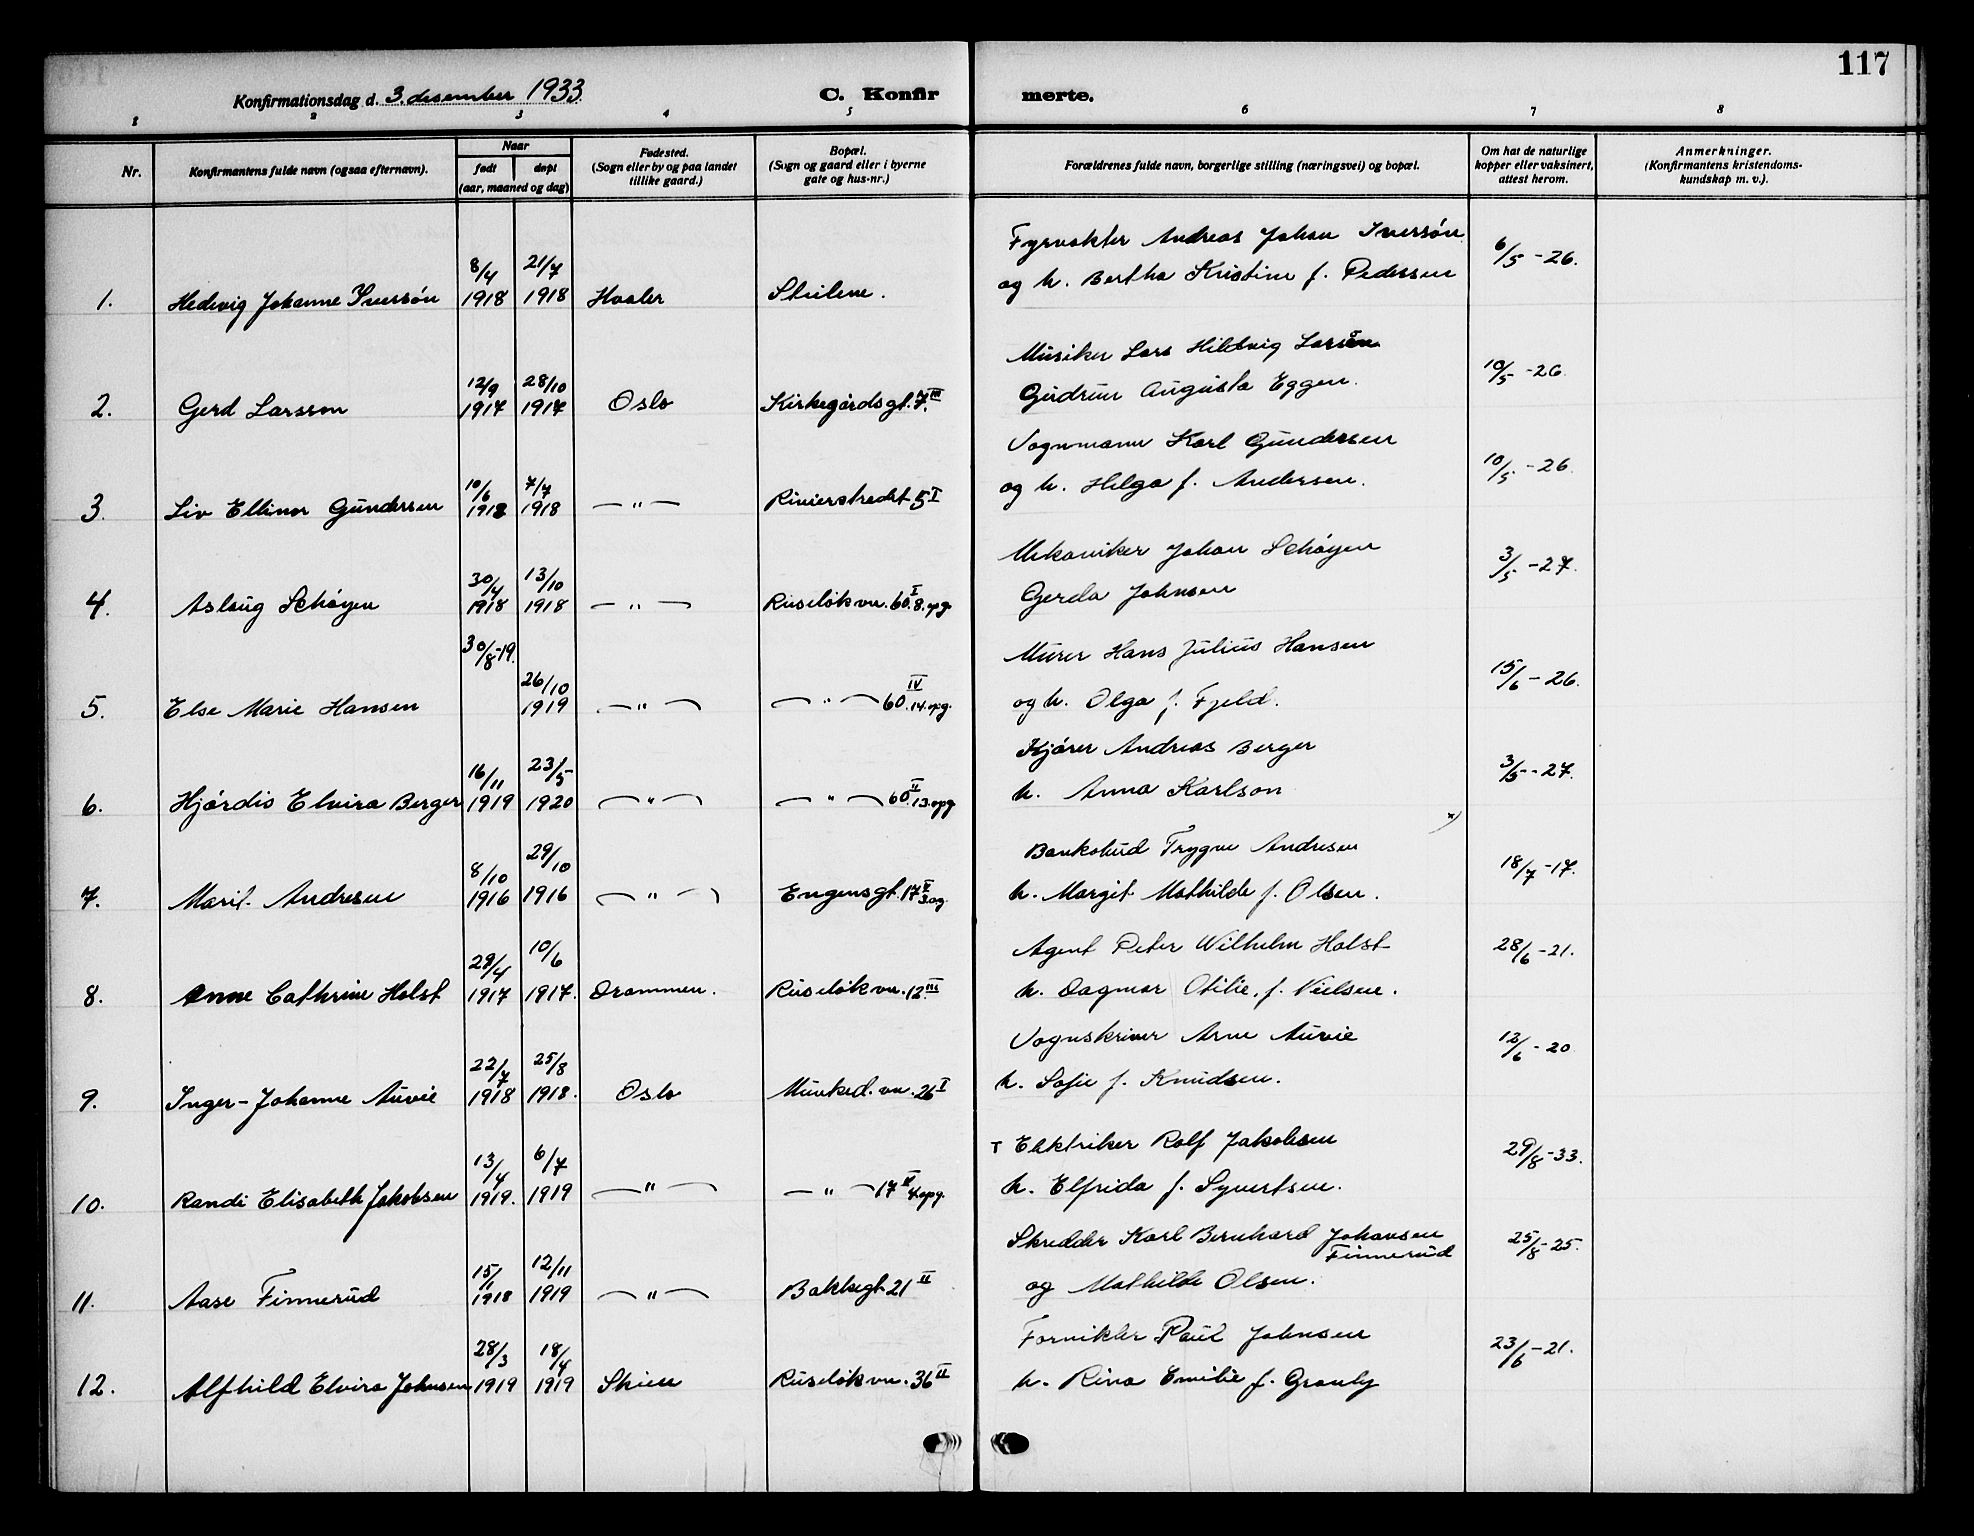 117
Konfirmationsdag d. 3. desember 1933. C. Konfirmerte.
1 2 3 4 5 6 7 8
Nr.
Konfirmantens fulde navn (ogsaa efternavn).
Naar
født døpt
(aar, maaned og dag)
Fødested.
(Sogn eller by og paa landet
tillike gaard.)
Bopæl.
(Sogn og gaard eller i byerne
gate og hus-nr.)
Forældrenes fulde navn, borgerlige stilling (næringsvei) og bopæl.
Om hat de naturlige
kopper eller vaksinert,
attest herom.
Anmerkninger.
(Konfirmantens kristendoms-
kundskap m. v.).
1. Hedevig Johanne Iversøn 8/4 1918 21/7 1918 Hvaler
Fyrvokter Andreas Johan Iversøn
og h. Bertha Kristine f. Pedersen
6/5 -26.
2. Gerd Larsson 12/9 1917 28/10 1917 Oslo Kirkegårdsgt. 7. III
Musiker Lars Hildvig Larsson
Gudrun Augusta Eggen.
10/5 -26.
3. Liv Ellinor Gundersen 10/6 1918 7/7 1918 — " — Rivierstredet 5 I
Vognmann Karl Gundersen
og h. Helga f. Andersen.
10/5 -26.
4. Aslaug Schøyen 30/4 1918 13/10 1918 — " — Ruseløkvn. 60 I 8. opg.
Mekaniker Johan Schøyen
Gerda Johnsen
3/5 -27.
5. Else Marie Hansen 30/8-19. 26/10 1919 — " — — " — 60 IV 14. opg.
Murer Hans Julius Hansen
og h. Olga f. Fjeld.
15/6 -26.
6. Hjørdis Elvira Berger 16/11 1919 23/5 1920 — " — — " — 60 II 13. opg
Kjører Andreas Berger
h. Anna Karlson
3/5 -27.
x)
7. Marit Andresen 8/10 1916 29/10 1916 — " — Engensgt. 17 V 3. og.
Bankbud Trygve Andresen
h. Margit Mathilde f. Olsen.
18/7 -17.
8. Anne Cathrine Holst 29/4 1917 10/6 1917. Drammen. Ruseløkvn. 12 III
Agent Peter Wilhelm Holst
h. Dagmar Otilie, f. Nielsen.
28/6 -21.
9. Inger-Johanne Auvie 22/7 1918 25/8 1918. Oslo Munked. vn. 26 I
Vognskriver Arne Auvie
h. Sofie f. Knudsen.
12/6 -20
10. Randi Elisabeth Jakobsen 13/4 1919. 6/7 1919 — " — — " — 17 II 4. opg.
T Elektriker Rolf Jakobsen
h. Elfrida f. Syvertsen.
29/8 -33.
11. Aase Finnerud 15/11 1918 12/11 1919 — " — Bakkegt 21 II
Skredder Karl Bernhard Johansen
Finnerud
og Mathilde Olsen.
25/8 -25.
12. Alfhild Elvira Johnsen 28/3 1919 18/4 1919 Skien Ruseløkvn. 36 II
Paul Johnsen
h. Rina Emilie f. Granly
23/6 -21.